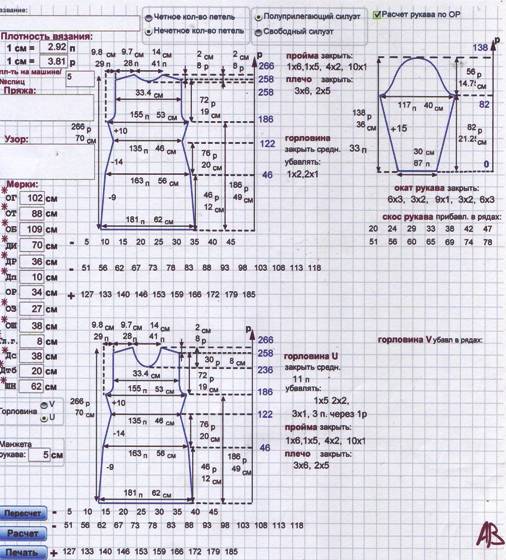 азвание:
Четное кол-во петель
Нечетное кол-во петель
Полуприлегающий силуэт
Свободный силуэт
Расчет рукава по ОР
Плотность вязания:
1 см = 2.92 п
1 см = 3.81 р
пл-ть на машине/
№спиц 5
Пряжа:
Узор:
Мерки:
ОГ 102 см
ОТ 88 см
ОБ 109 см
ДИ 70 см
ДР 36 см
Дп 10 см
ОР 34 см
ОЗ 27 см
ОШ 38 см
8 см
Дс 38 см
Дтб 20 см
ШН 62 см
Горловина V
U
Манжета
рукава: 5 см
Пересчет
Расчет
Печать
9.8 см 9.7 см 14 см
29 п 28 п 41 п
2 см 2 см
8 р 8 р
р
266
258
258
186
122
46
33.4 см
72 р
19 см
155 п 53 см
266 р
70 см
+10
135 п 46 см
76 р
20 см
-14
163 п 56 см
186 р
49 см
46 р
12 см
-9
181 п 62 см
пройма закрыть:
1х6,1х5, 4х2, 10х1
плечо закрыть:
3х6, 2х5
горловина
закрыть средн. 33 п
убавлять:
1х2,2х1
р
138
82
0
56 р
14.75 см
117 п 40 см
138 р
36 см
+15
82 р
21.25 см
30 см
87 п
окат рукава закрыть:
6х3, 3х2, 9х1, 3х2, 6х3
скос рукава прибавл. в рядах:
20 24 29 33 38 42 47
51 56 60 65 69 74 78
- 5 10 15 20 25 30 35 40 45
- 51 56 62 67 73 78 83 88 93 98 103 108 113 118
+ 127 133 140 146 153 159 166 172 179 185
9.8 см 9.7 см 14 см
29 п 28 п 41 п
2 см
8 р
р
266
258
236
186
122
46
30 р 8 см
33.4 см
72 р
19 см
155 п 53 см
266 р
70 см
+10
135 п 46 см
76 р
20 см
-14
163 п 56 см
186 р
49 см
46 р
12 см
-9
181 п 62 см
горловина U
закрыть средн.
11 п
убавлять:
1х5 2х2,
3х1, 3 п. через 1р
пройма закрыть:
1х6,1х5, 4х2, 10х1
плечо закрыть:
3х6, 2х5
горловина V убавл в рядах:
- 5 10 15 20 25 30 35 40 45
- 51 56 62 67 73 78 83 88 93 98 103 108 113 118
+ 127 133 140 146 153 159 166 172 179 185
АВ